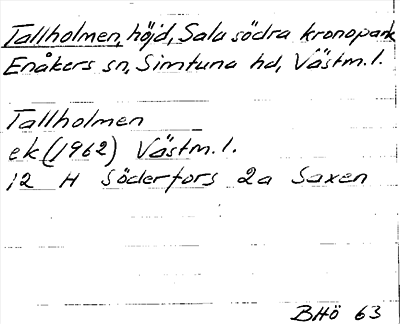 Tallholmen, höjd, Sala södra kronopark
Enåkers sn, Simtuna hd, Västm.l.
Tallholmen
ek (1962) Västm.l.
12 H Söderfors 2a Saxen
BHö 63